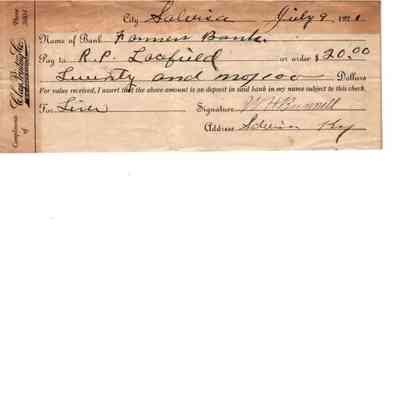 City Salvisa July 9 192
Name of Bank Farmers Bank
Pay to R.P. Locfield or order $20.00
Twenty and no/100 Dollars
For value received, I assert that the above amount is on deposit in said bank in my name subject to this check.
For Signature W H Bunnell
Address Salvisa Ky
Compliments of
Phone